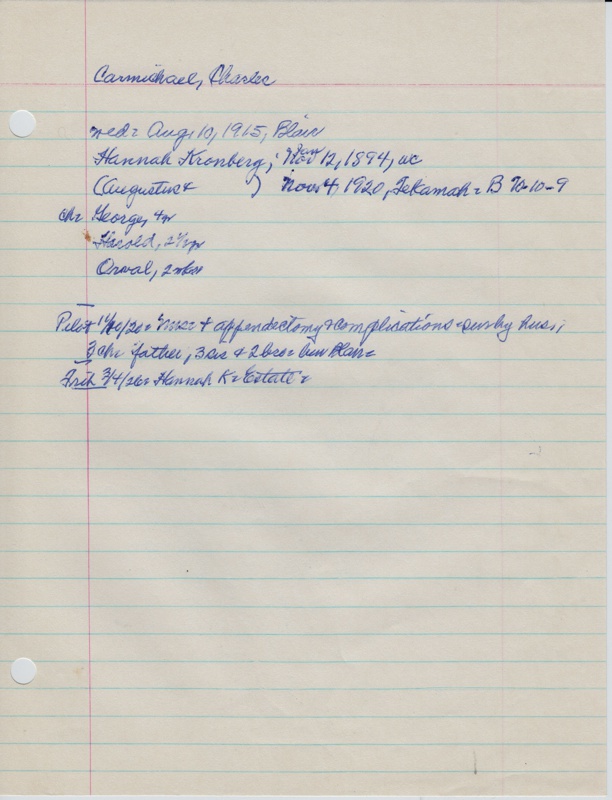 Carmichael, Charles
wed= Aug, 10, 1915, Blair
Hannah Kronberg, Jan 12, 1894, wc
(Augustus + ) Nov 4, 1920, Tekamah = B 70-10-9
ch= George, 4 yr
Harold, 2½ yr
Orval, 2 mos
Pilot 11/10/20= + appendectomy + complications = surv by hus;
3 ch= father, 3 sis + 2 bro= bur Blair=
3/4/26= Hannah K= Estate=